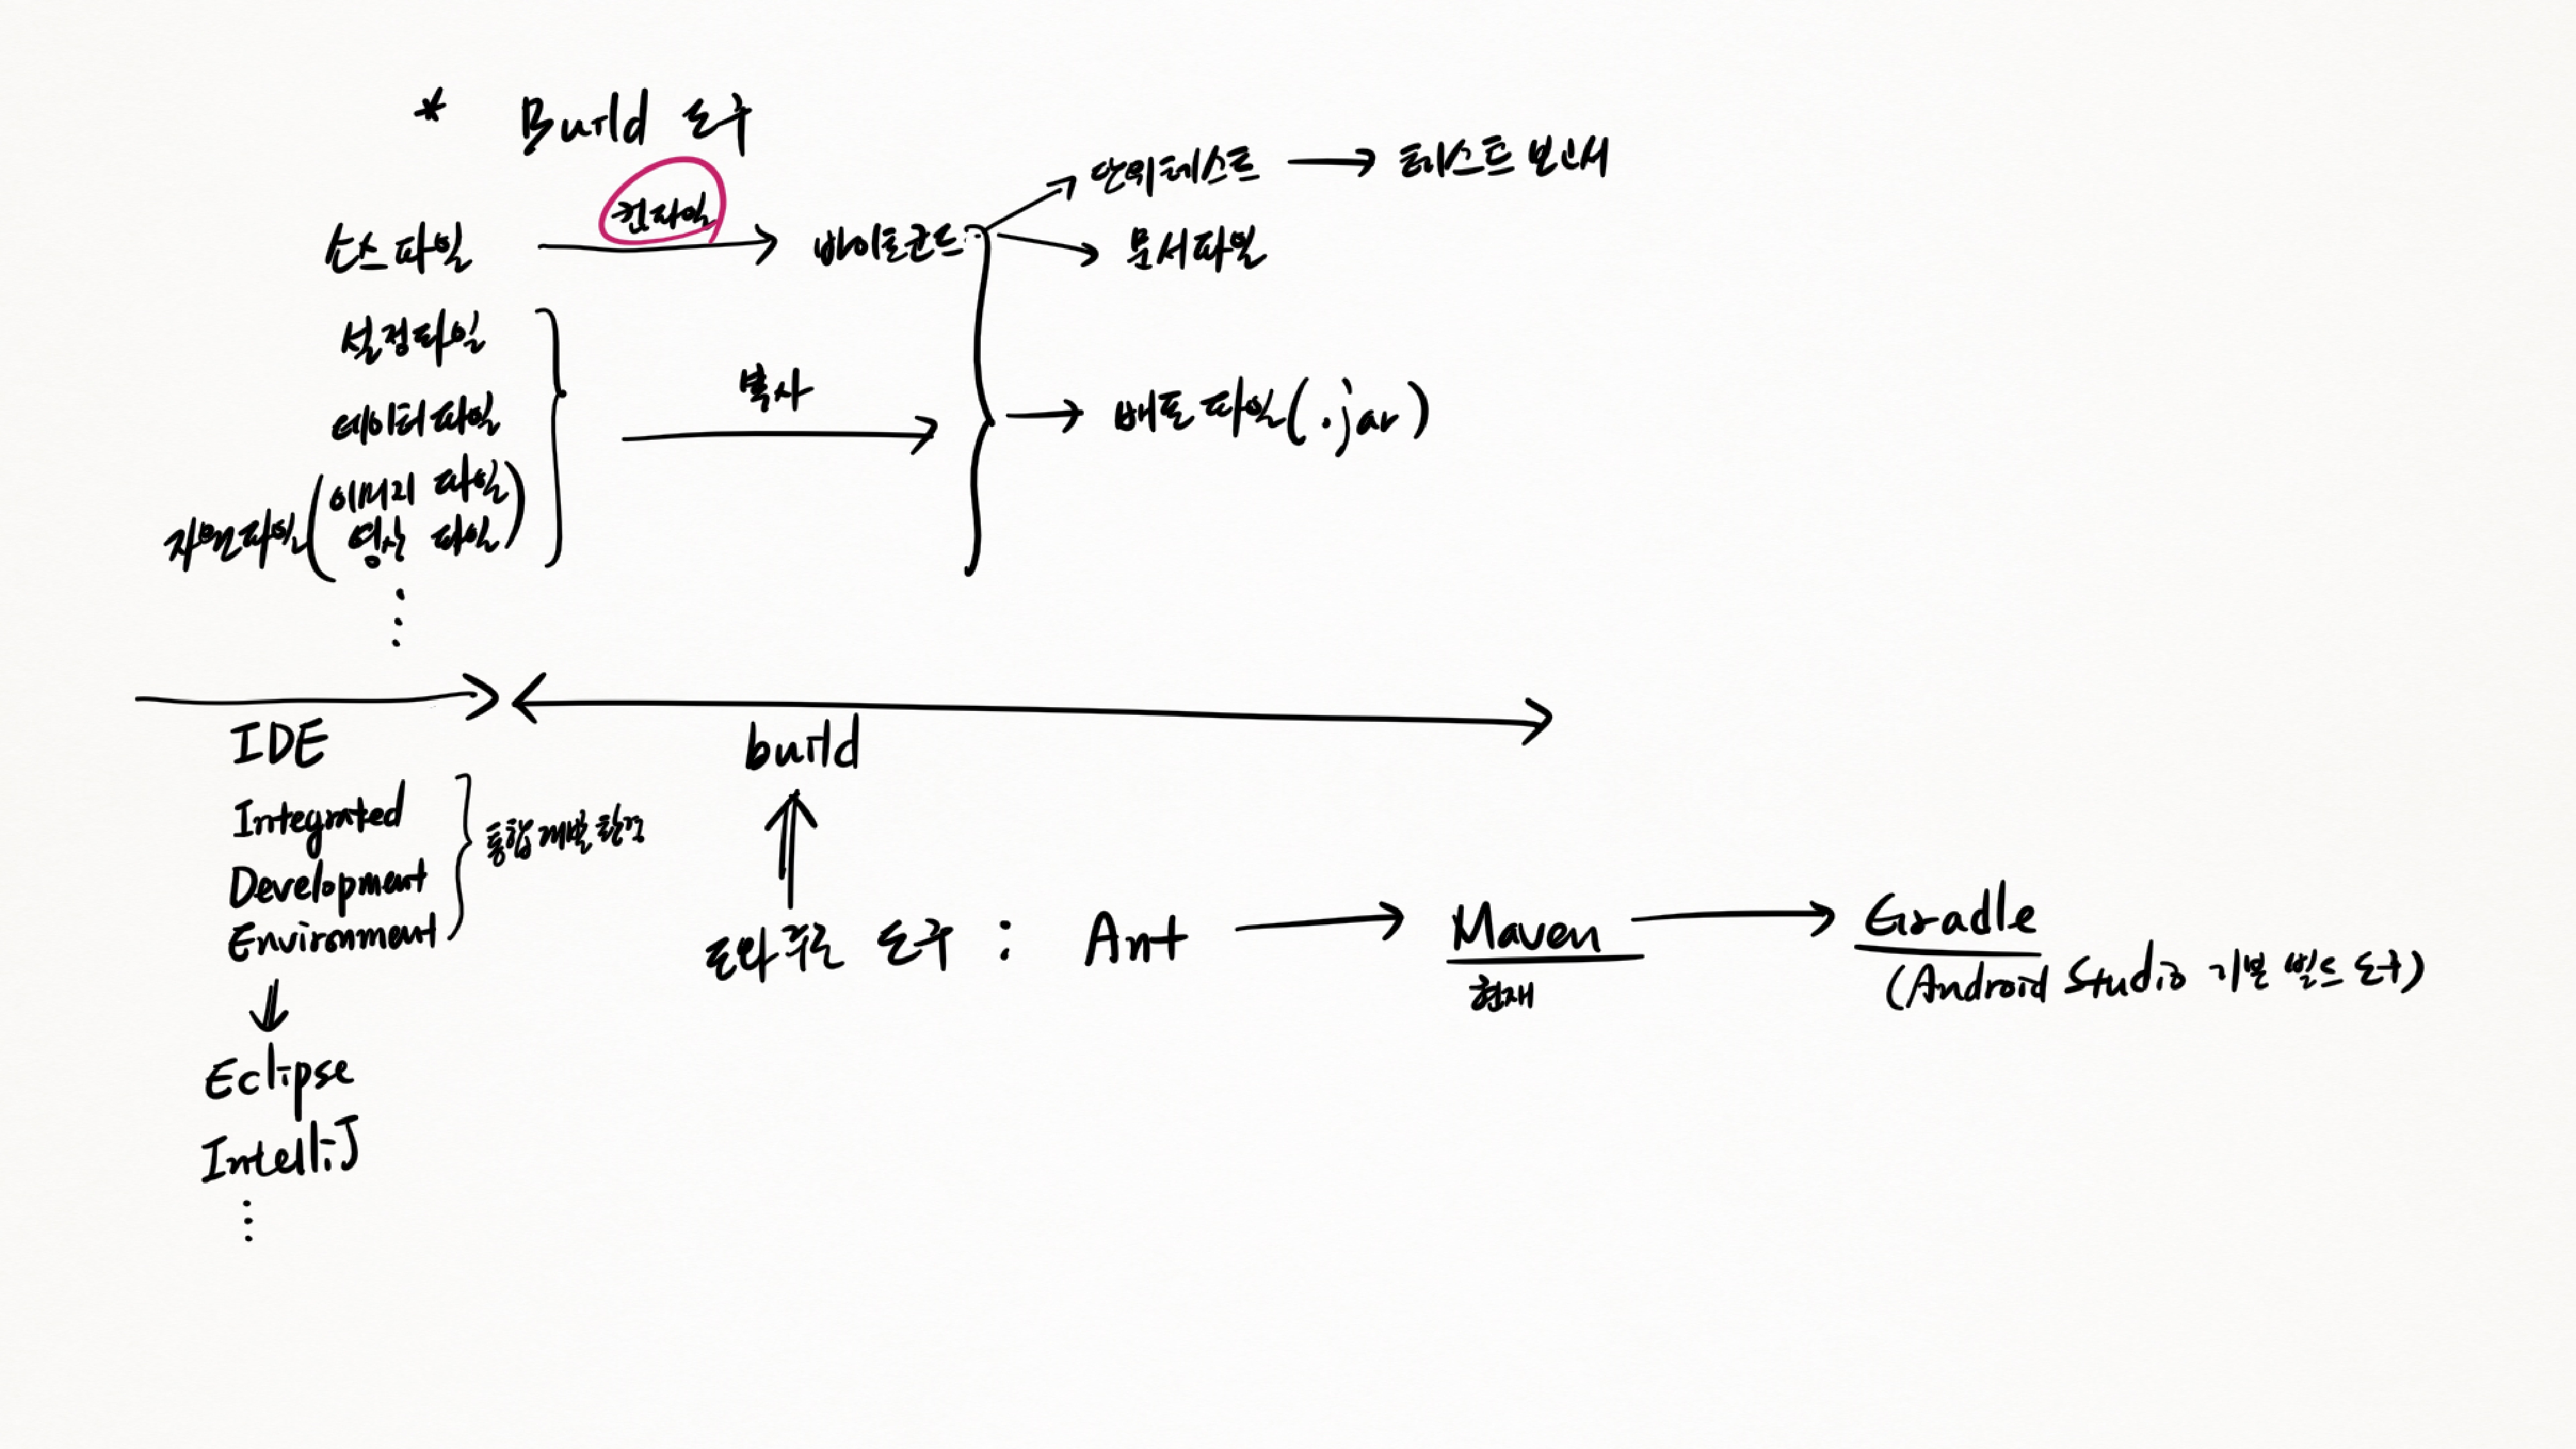 * Build 도구
컴파일
소스파일 → 바이트코드 → 단위테스트 → 테스트 보고서
→ 문서파일
설정파일
데이터파일
복사
→ 배포 파일(.jar)
자원파일(이미지 파일
영상 파일)
IDE
build
Integrated
Development
Environment
통합개발환경
도와주는 도구 : Ant → Maven → Gradle
현재
(Android Studio 기본 빌드 도구)
Eclipse
IntelliJ